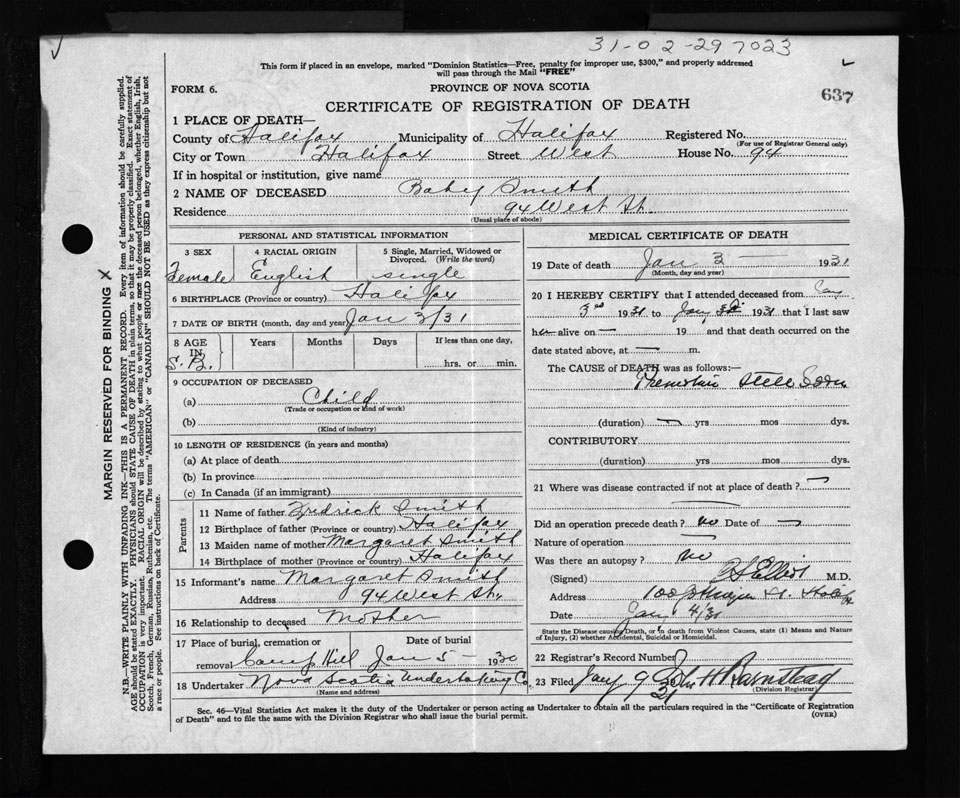 31-02-297023
This form if placed in an envelope, marked "Dominion Statistics—Free, penalty for improper use, $300," and properly addressed
will pass through the Mail "FREE"
FORM 6.
PROVINCE OF NOVA SCOTIA
637
CERTIFICATE OF REGISTRATION OF DEATH
1 PLACE OF DEATH—
County of Halifax Municipality of Halifax Registered No.
(For use of Registrar General only)
City or Town Halifax Street West House No. 94
If in hospital or institution, give name
2 NAME OF DECEASED Baby Smith
Residence 94 West St.
(Usual place of abode)
PERSONAL AND STATISTICAL INFORMATION
3 SEX 4 RACIAL ORIGIN 5 Single, Married, Widowed or
Divorced. (Write the word)
Female English single
6 BIRTHPLACE (Province or country) Halifax
7 DATE OF BIRTH (month, day and year) Jan 3/31
8 AGE IN Years Months Days If less than one day,
S.B. hrs. or min.
9 OCCUPATION OF DECEASED
(a) Child
(Trade or occupation or kind of work)
(b)
(Kind of industry)
10 LENGTH OF RESIDENCE (in years and months)
(a) At place of death
(b) In province
(c) In Canada (if an immigrant)
Parents
11 Name of father Fredrick Smith
12 Birthplace of father (Province or country) Halifax
13 Maiden name of mother Margaret Smith
14 Birthplace of mother (Province or country) Halifax
15 Informant's name Margaret Smith
Address 94 West St.
16 Relationship to deceased Mother
17 Place of burial, cremation or Date of burial
removal Camp Hill Jan 5 — 1930
18 Undertaker Nova Scotia Undertaking Co.
(Name and address)
MEDICAL CERTIFICATE OF DEATH
19 Date of death Jan 3 — 1931
(Month, day and year)
20 I HEREBY CERTIFY that I attended deceased from Jany
3rd 1931 to Jany 3d 1931 that I last saw
her alive on — 19 , and that death occurred on the
date stated above, at — m.
The CAUSE of DEATH was as follows:—
Premature Still Born
(duration) — yrs mos dys.
CONTRIBUTORY
(duration) yrs mos dys.
21 Where was disease contracted if not at place of death? —
Did an operation precede death? no Date of —
Nature of operation —
Was there an autopsy? no
(Signed) M.D.
Address Halifax
Date Jany 4/31
State the Disease causing Death, or in death from Violent Causes, state (1) Means and
Nature of Injury, (2) whether Accidental, Suicidal or Homicidal.
22 Registrar's Record Number
23 Filed Jany 9 31 John H Barnstead
(Division Registrar)
Sec. 46—Vital Statistics Act makes it the duty of the Undertaker or person acting as Undertaker to obtain all the particulars required in the "Certificate of Registration
of Death" and to file the same with the Division Registrar who shall issue the burial permit.
(OVER)
MARGIN RESERVED FOR BINDING X
N.B.—WRITE PLAINLY WITH UNFADING INK—THIS IS A PERMANENT RECORD. Every item of information should be carefully supplied.
AGE should be stated EXACTLY. PHYSICIANS should STATE CAUSE OF DEATH in plain terms, so that it may be properly classified. Exact statement of
OCCUPATION is very important. RACIAL ORIGIN will be described by stating to what people or race the deceased person belonged, whether English, Irish,
Scotch, French, German, Russian, Ruthenian, etc. The terms "AMERICAN" or "CANADIAN" SHOULD NOT BE USED as they express citizenship but not
a race or people. See instructions on back of Certificate.